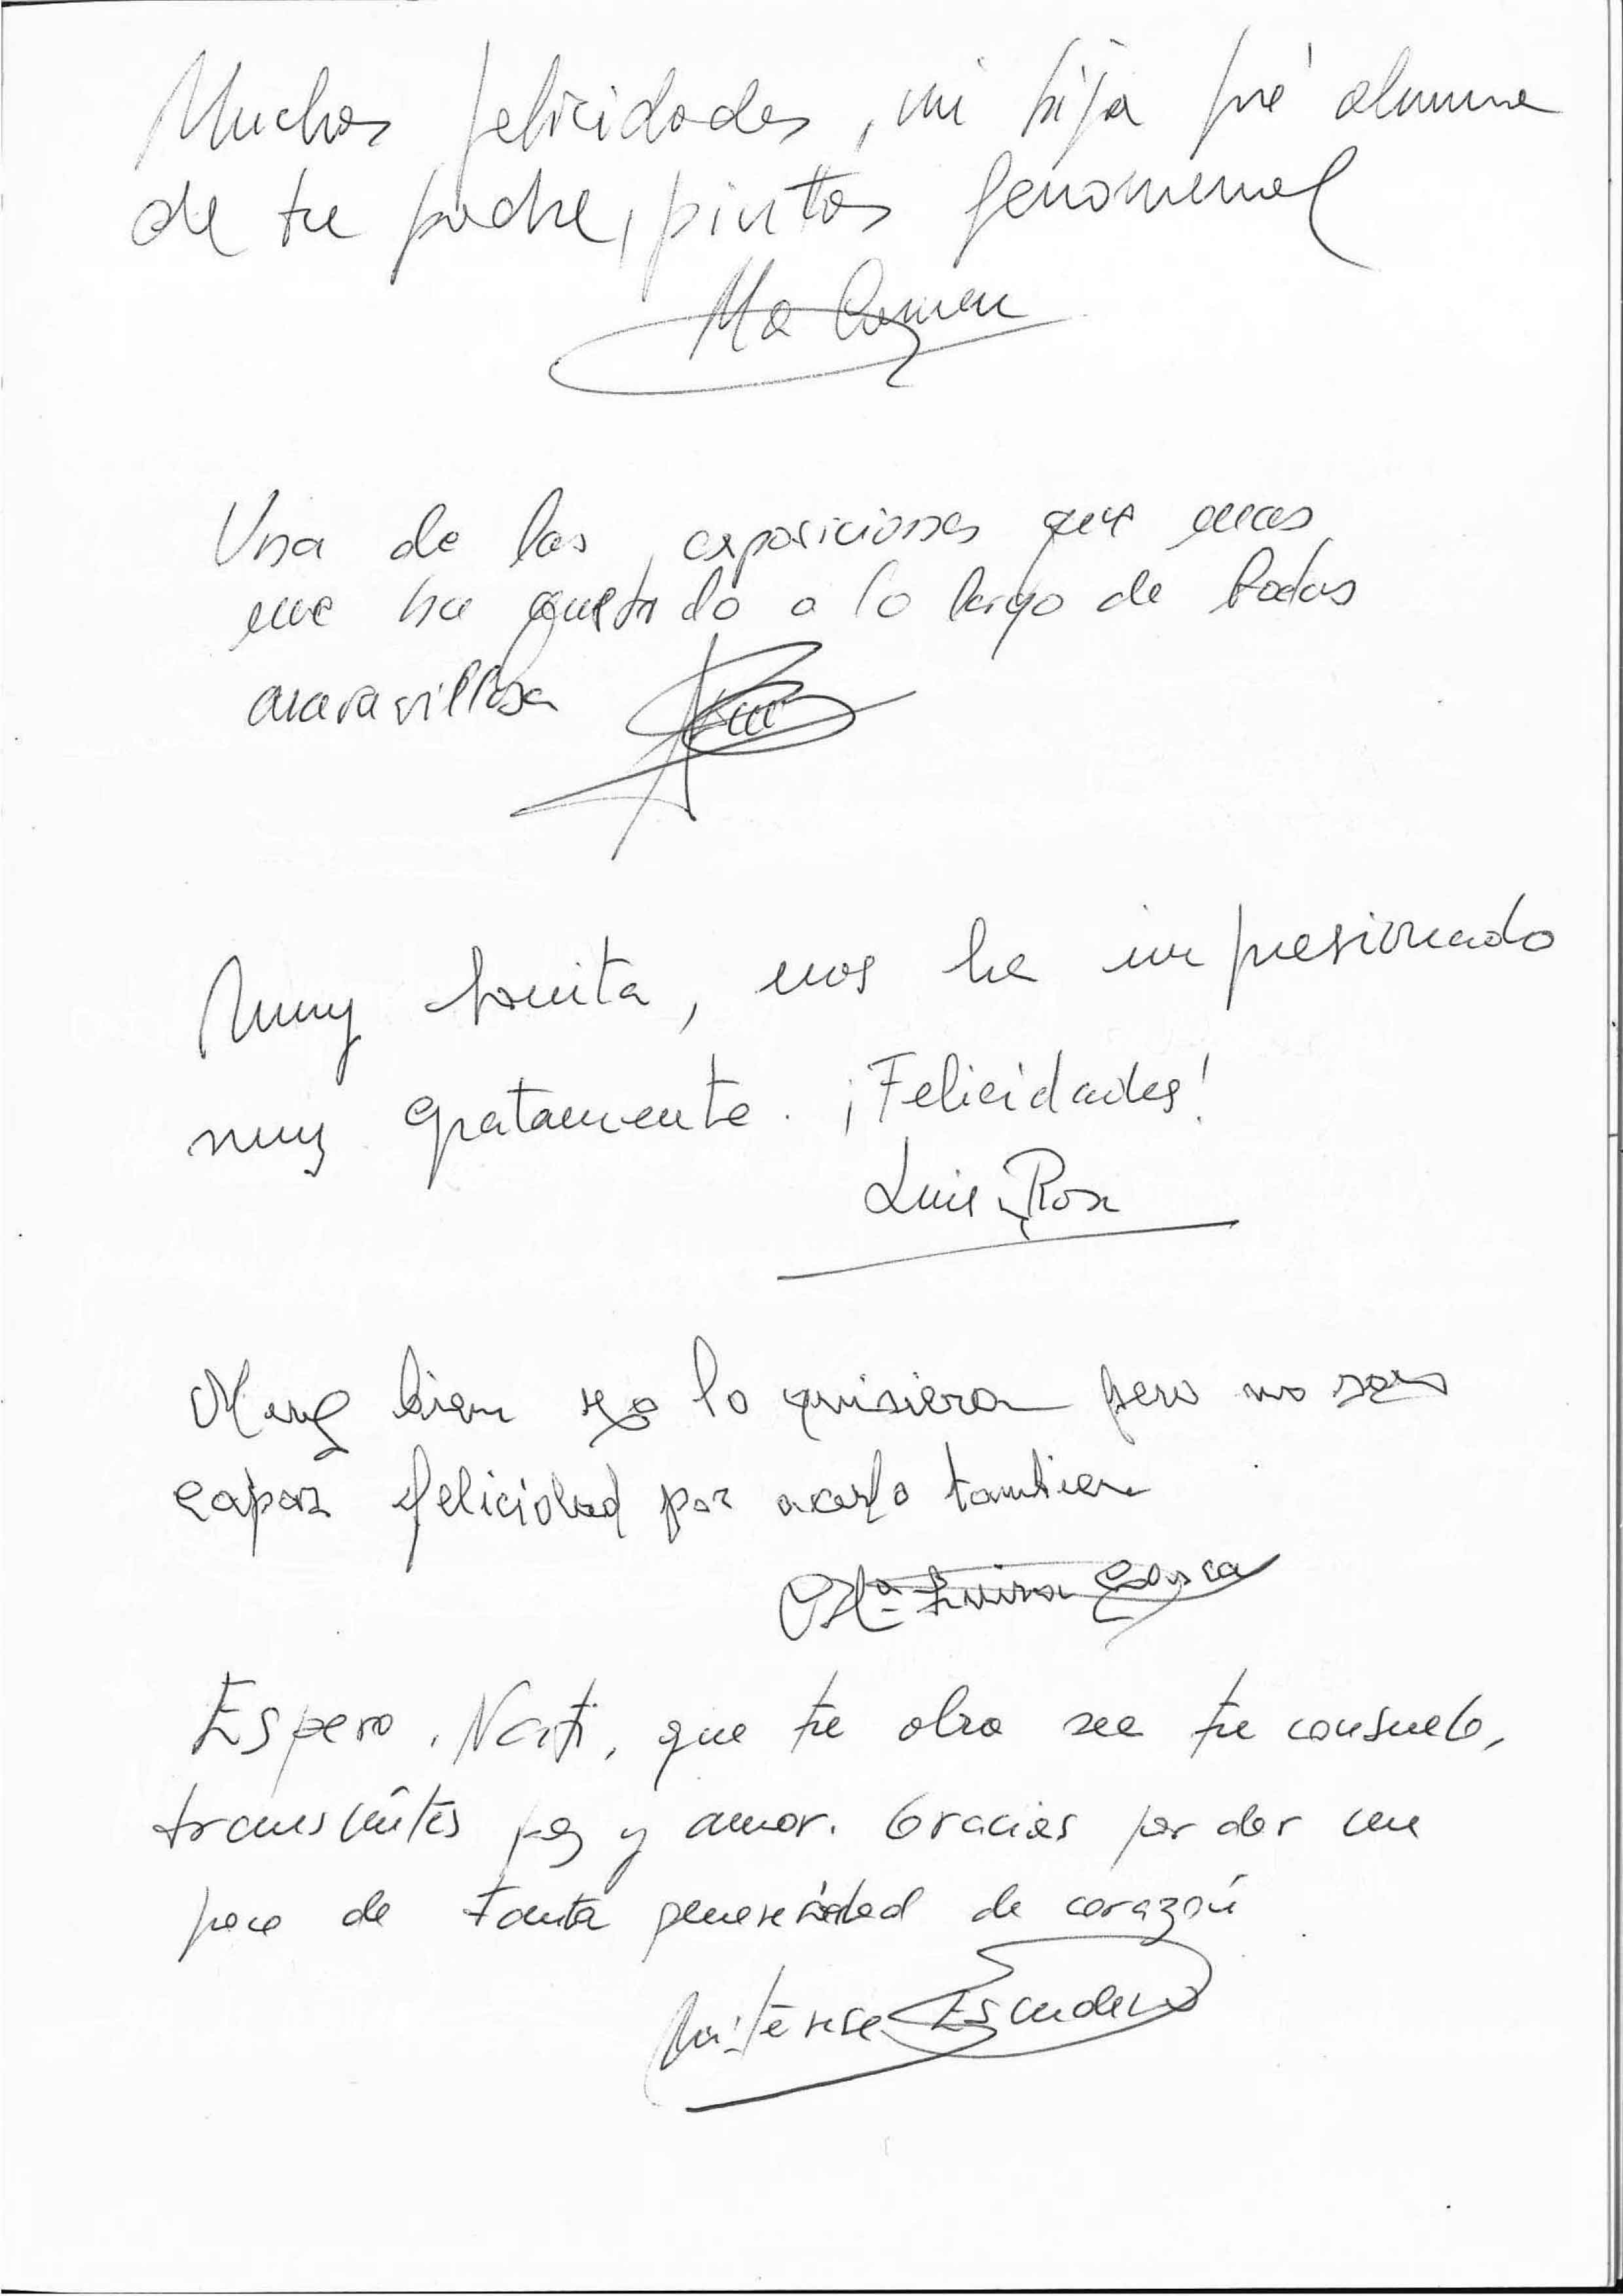 Muchas felicidades, mi hija fué alumna
de tu padre, pintas fenomenal
Ma Carmen
Una de las exposiciones que mas
me ha gustado a lo largo de todas
maravillosa
Muy bonita, nos ha impresionado
muy gratamente. ¡Felicidades!
Luis y Rosa
Muy bien yo lo quisiera pero no soy
capaz felicidad por acerlo tambien
Mª Luisa
Espero, Nati, que tu obra sea tu consuelo,
transmites paz y amor. Gracias por dar un
poco de tanta generosidad de corazón
Escudero